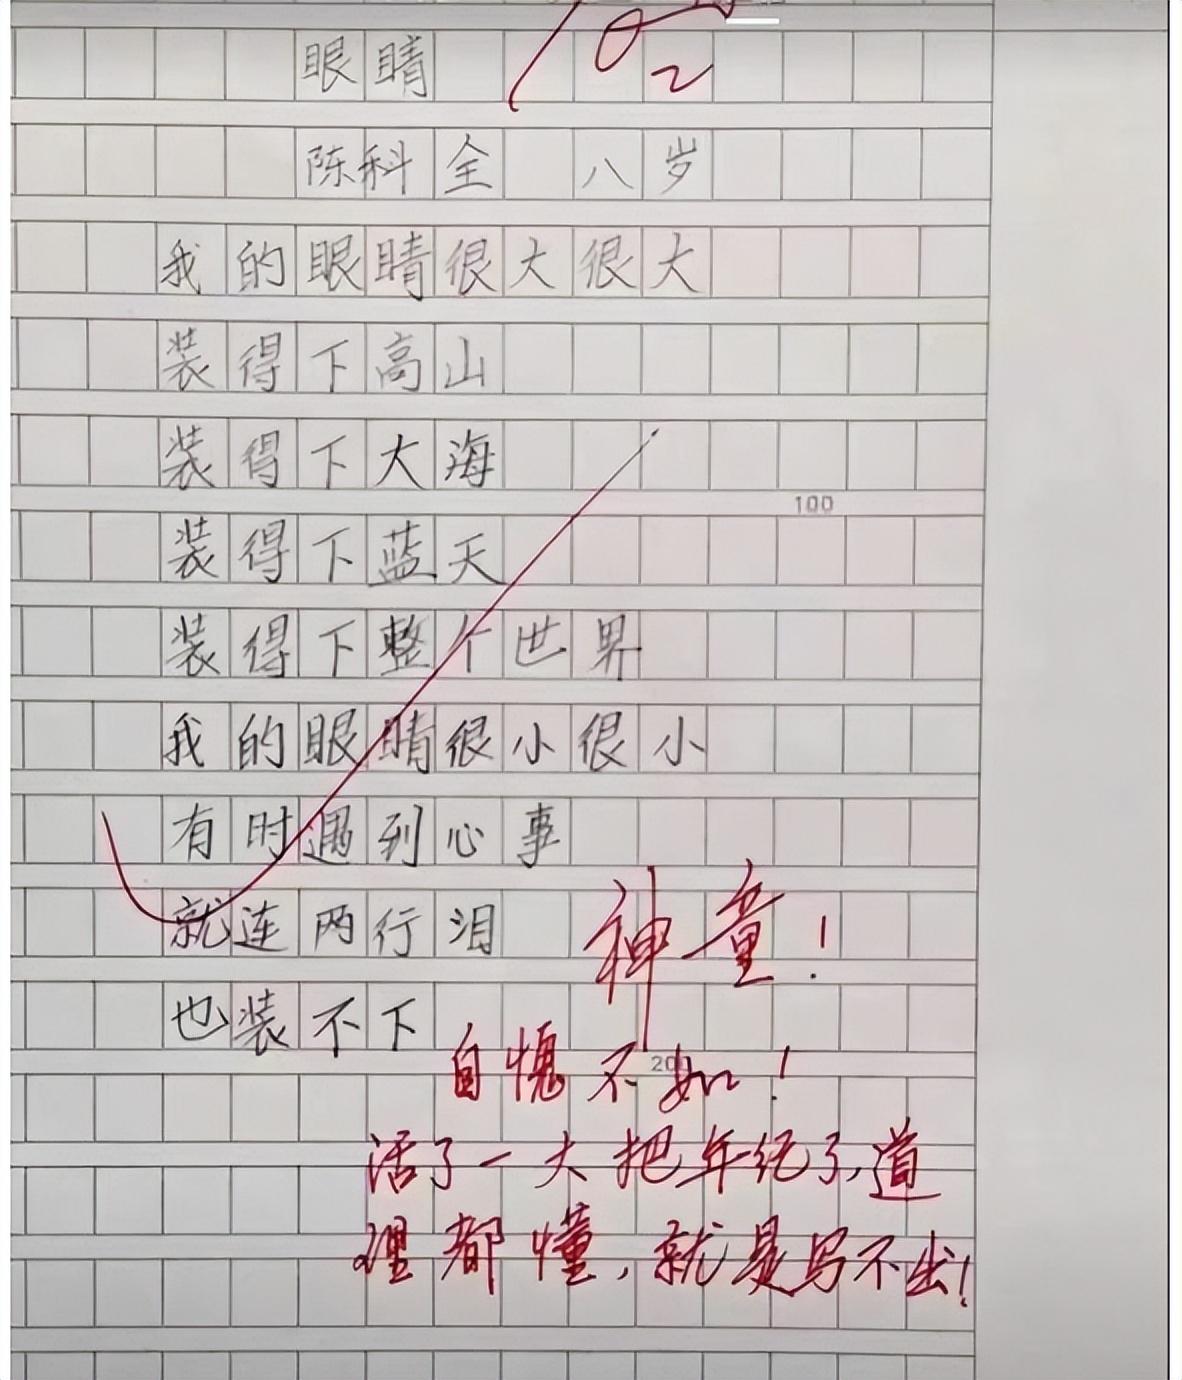 眼睛
陈科全 八岁
我的眼睛很大很大
装得下高山
装得下大海
100
装得下蓝天
装得下整个世界
我的眼睛很小很小
有时遇到心事
就连两行泪
神童！
也装不下
自愧不如！
200
活了一大把年纪了,道
理都懂,就是写不出!